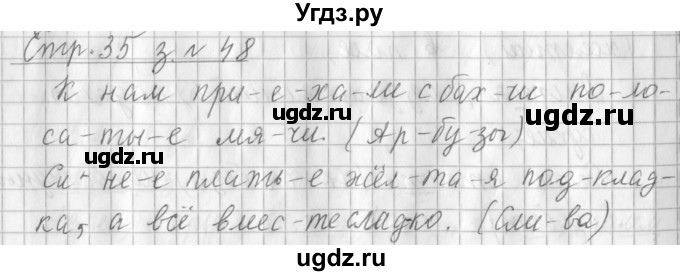 Угдз.ру
Стр. 35 з. № 48
К нам при-е-ха-ли с бах-чи по-ло-
са-ты-е мя-чи. (Ар-бу-зы)
Си-не-е плать-е жёл-та-я под-клад-
ка, а всё вмес-те сладко. (Сли-ва)
ugdz.ru
ugdz.ru
ugdz.ru
ugdz.ru
ugdz.ru
ugdz.ru